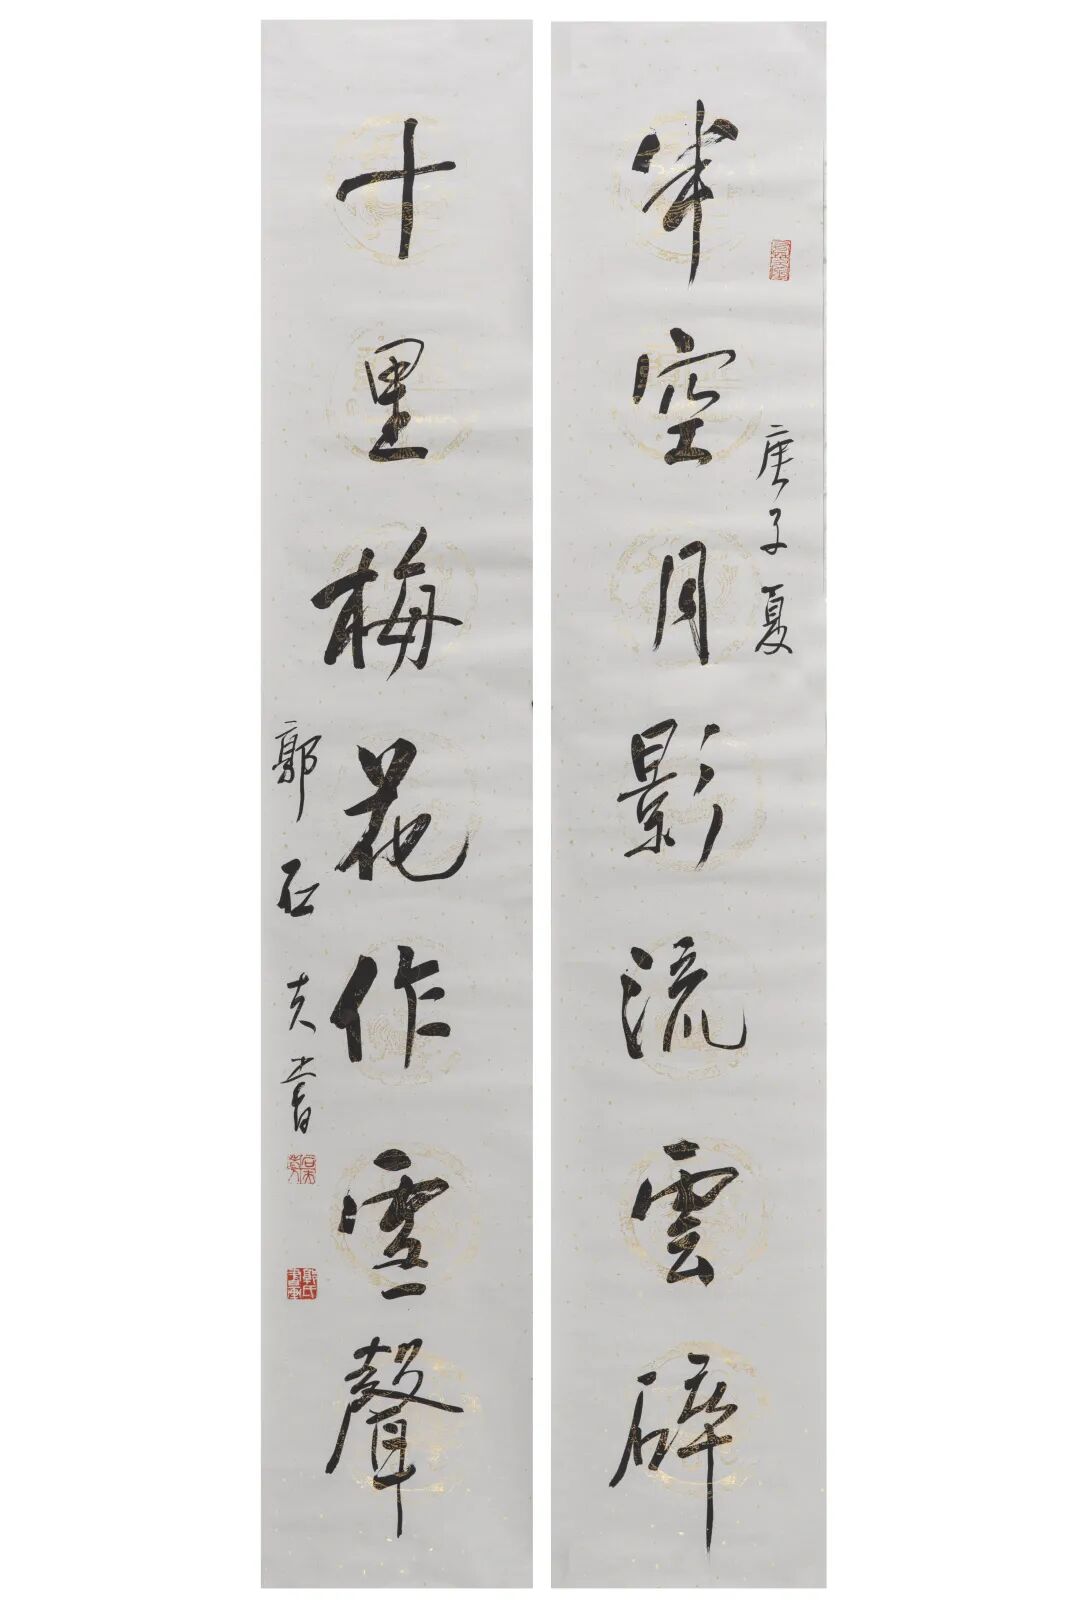 半空月影流雲碎
庚子夏
十里梅花作雪聲
郭石夫書